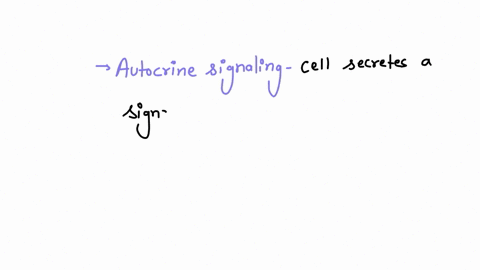 → Autocrine signaling - cell secretes a
sign-